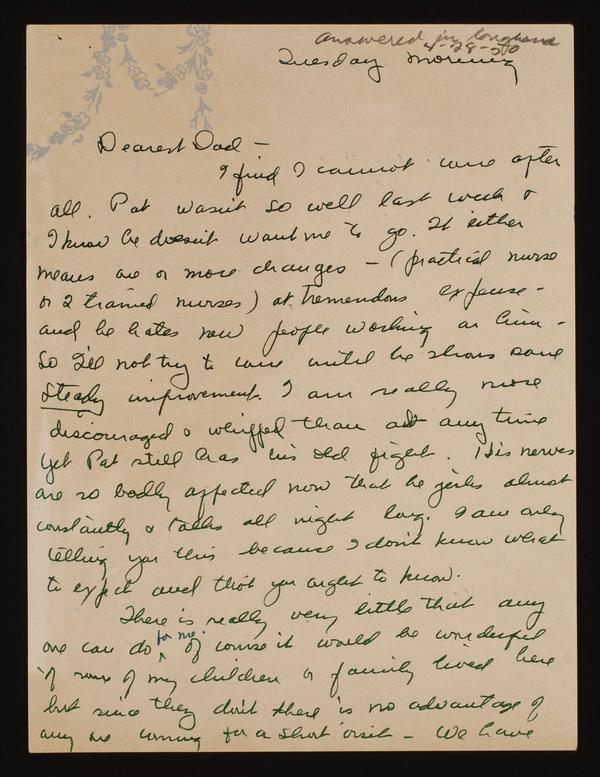 answered in longhand
4-28-50
Tuesday morning
Dearest Dad -
I find I cannot come after
all. Pat wasn't so well last week &
I know he doesn't want me to go. It either
means one or more changes - (practical nurse
or 2 trained nurses) at tremendous expense -
and he hates new people working on him -
So I'll not try to come until he shows some
steady improvement. I am really more
discouraged & whipped than at any time
yet Pat still has his old fight. His nerves
are so badly affected now that he jerks almost
constantly & talks all night long. I am only
telling you this because I don't know what
to expect and that you ought to know.
There is really very little that any
one can do for me. Of course it would be wonderful
if some of my children or family lived here
but since they don't there is no advantage of
any one coming for a short visit - We have